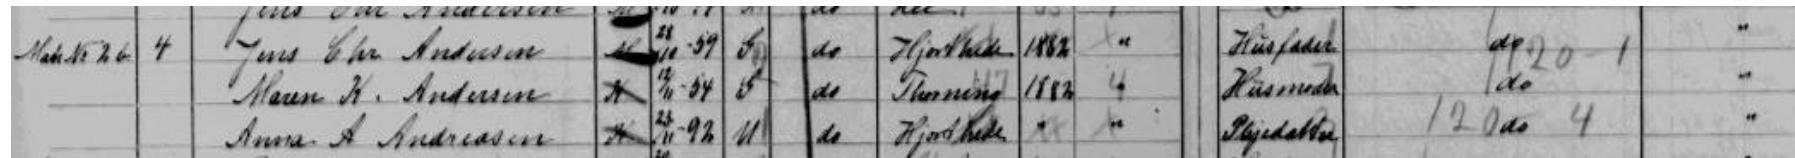 Jens Chr Andersen
Matr Nr 2 b 4 Jens Chr Andersen M 28/10-59 G do Hjorthede 1882 " Husfader do 120-1 "
Maren K. Andersen K 12/11-54 G do Thorning 1882 4 Husmoder do "
Anna A Andreasen K 23/11-92 U do Hjorthede " " Plejedatter 120 do 4 "